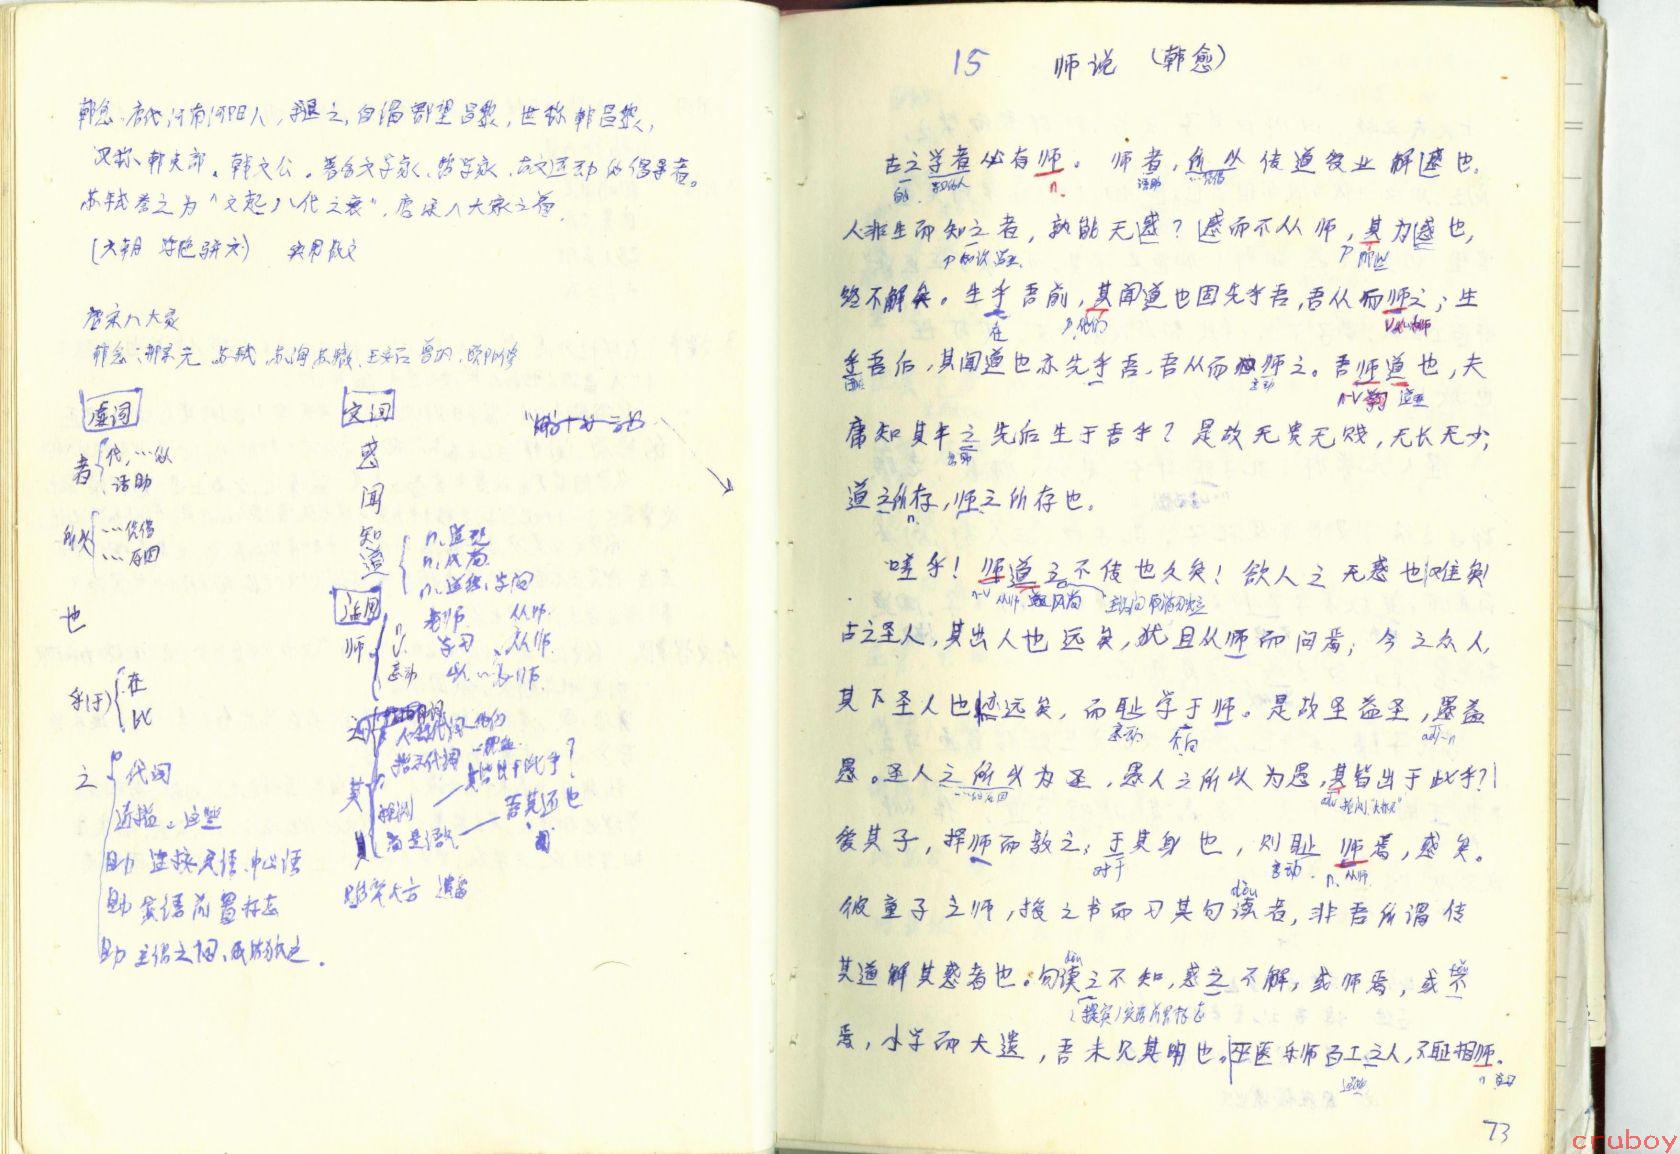 韩愈,唐代河南河阳人,字退之,自谓郡望昌黎,世称韩昌黎,
又称韩吏部。韩文公。著名文学家、哲学家、古文运动的倡导者。
苏轼誉之为“文起八代之衰”,唐宋八大家之首.
唐宋八大家
韩愈、柳宗元 苏轼 苏洵 苏辙、王安石 曾巩、欧阳修
虚词
者 代,…人
语助
所以 …凭借
…原因
也
乎(于) 在
比
之 代词
近指。这些
助 连接定语、中心语
助 宾语前置标志
助 主谓之间、取消独立.
实词
惑
闻
知
道 n.道理
n.风尚
n.道德、学问
师 n. 老师. 从师.
v. 学习、从师.
意动 以…为师.
其
指示代词
推测 其皆出于此乎?
贻笑大方
15 师说 (韩愈)
古之学者必有师。师者,所以传道受业解惑也.
的. 求学的人 n. 语助 …凭借
人非生而知之者,孰能无惑?惑而不从师,其为惑也,
P 那些
终不解矣。生乎吾前,其闻道也固先乎吾,吾从而师之;生
在 P 他们
乎吾后,其闻道也亦先乎吾,吾从而师之。吾师道也,夫
意动 n-v 道理
庸知其年之先后生于吾乎?是故无贵无贱,无长无少,
道之所存,师之所存也.
n.
嗟乎!师道之不传也久矣!欲人之无惑也难矣!
n-v 从师. 风尚 主谓间取消独立
古之圣人,其出人也远矣,犹且从师而问焉;今之众人,
其下圣人也亦远矣,而耻学于师。是故圣益圣,愚益
意动 向 adj-n
愚。圣人之所以为圣,愚人之所以为愚,其皆出于此乎?
…的原因 adv 推测,“大概”
爱其子,择师而教之;于其身也,则耻师焉,惑矣。
对于 意动. n. 从师.
dòu
彼童子之师,授之书而习其句读者,非吾所谓传
dòu
其道解其惑者也。句读之不知,惑之不解,或师焉,或不
宾语前置标志
焉,小学而大遗,吾未见其明也。巫医乐师百工之人,不耻相师。
这些
73
cruboy